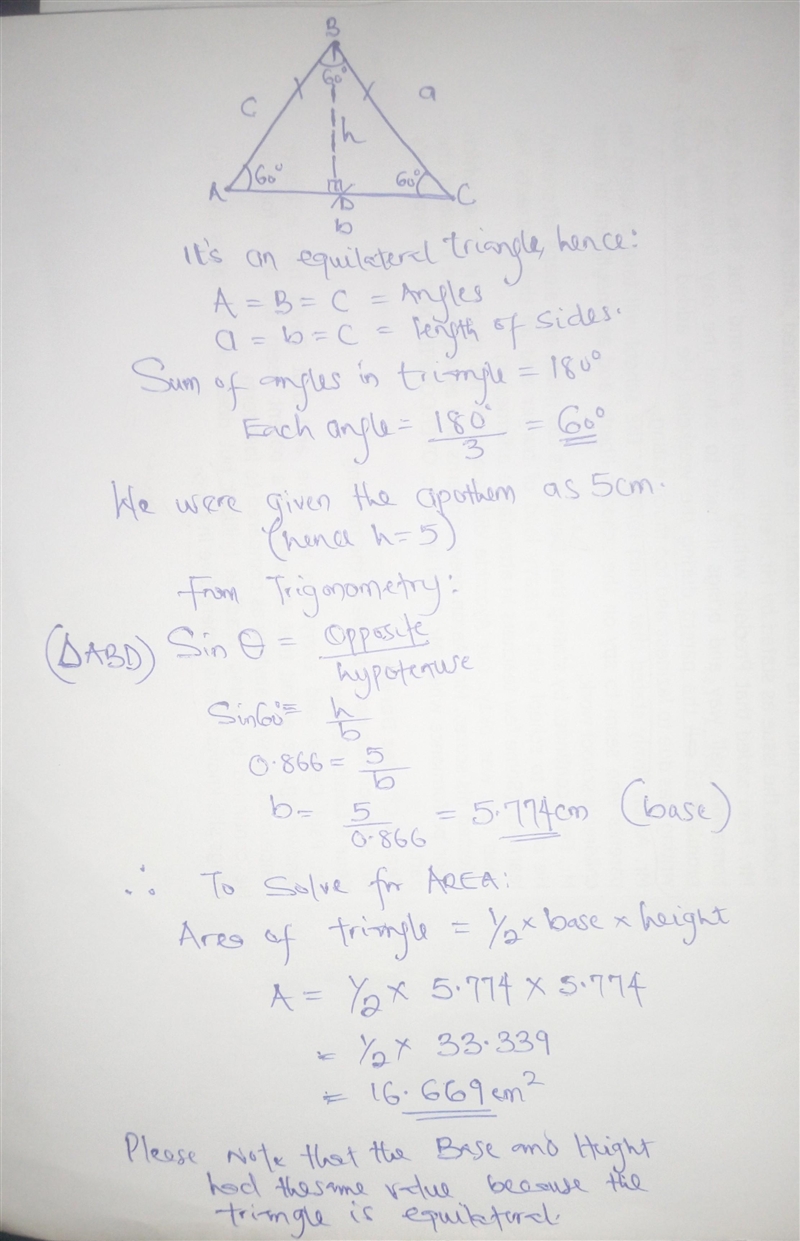 B
60°
C
a
h
A
60°
60°
C
D
b
It's an equilateral triangle, hence:
A = B = C = Angles
a = b = C = length of sides.
Sum of angles in triangle = 180°
Each angle = 180°/3 = 60°
We were given the apothem as 5cm.
(hence h=5)
From Trigonometry:
(ΔABD) Sin θ = Opposite/hypotenuse
Sin60° = h/b
0.866 = 5/b
b = 5/0.866 = 5.774cm (base)
∴ To Solve for AREA:
Area of triangle = 1/2 × base × height
A = 1/2 × 5.774 × 5.774
= 1/2 × 33.339
= 16.669cm²
Please Note that the Base and Height
had thesame value because the
triangle is equilateral.